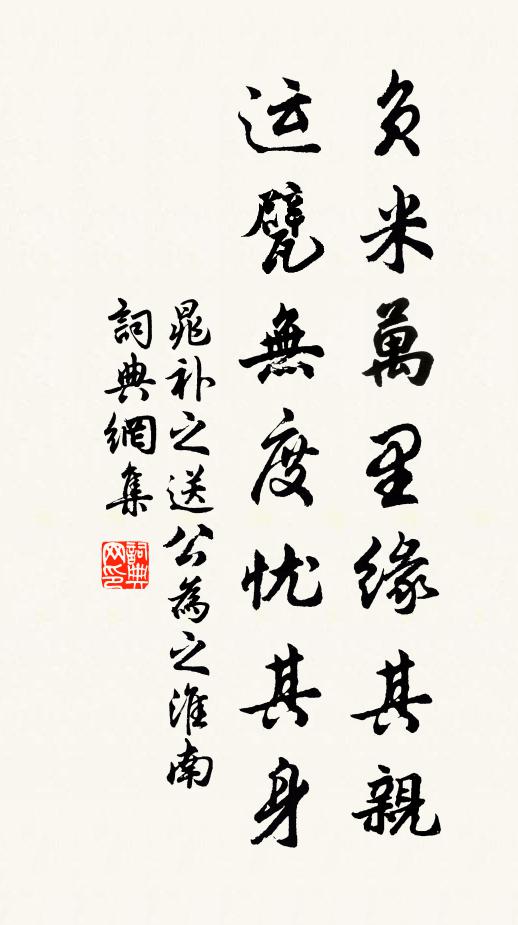 负米萬里緣其親
运甓無度忧其身
晁补之送公為之淮南
詞典網集
詞典网印